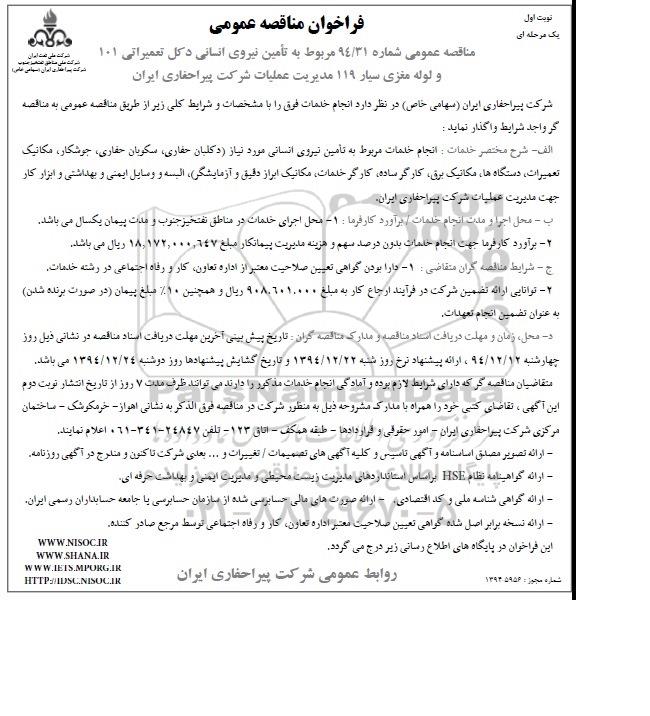 نوبت اول
یک مرحله ای
فراخوان مناقصه عمومی
شرکت ملی نفت ایران
شرکت ملی مناطق نفتخیز جنوب
شرکت پیراحفاری ایران (سهامی خاص)
مناقصه عمومی شماره ۹۴/۳۱ مربوط به تأمین نیروی انسانی دکل تعمیراتی ۱۰۱
و لوله مغزی سیار ۱۱۹ مدیریت عملیات شرکت پیراحفاری ایران
شرکت پیراحفاری ایران (سهامی خاص) در نظر دارد انجام خدمات فوق را با مشخصات و شرایط کلی زیر از طریق مناقصه عمومی به مناقصه
گر واجد شرایط واگذار نماید :
الف- شرح مختصر خدمات : انجام خدمات مربوط به تأمین نیروی انسانی مورد نیاز (دکلبان حفاری، سکوبان حفاری، جوشکار، مکانیک
تعمیرات، دستگاه ها، مکانیک برق، کارگر ساده، کارگر خدمات، مکانیک ابزار دقیق و آزمایشگر)، البسه و وسایل ایمنی و بهداشتی و ابزار کار
جهت مدیریت عملیات شرکت پیراحفاری ایران.
ب - محل اجرا و مدت انجام خدمات / برآورد کارفرما : ۱- محل اجرای خدمات در مناطق نفتخیزجنوب و مدت پیمان یکسال می باشد.
۲- برآورد کارفرما جهت انجام خدمات بدون درصد سهم و هزینه مدیریت پیمانکار مبلغ ۱۸,۱۷۲,۰۰۰,۶۴۷ ریال می باشد.
ج - شرایط مناقصه گران متقاضی : ۱- دارا بودن گواهی تعیین صلاحیت معتبر از اداره تعاون، کار و رفاه اجتماعی در رشته خدمات.
۲- توانایی ارائه تضمین شرکت در فرآیند ارجاع کار به مبلغ ۹۰۸.۶۰۱.۰۰۰ ریال و همچنین ۱۰٪ مبلغ پیمان (در صورت برنده شدن)
به عنوان تضمین انجام تعهدات.
د- محل، زمان و مهلت دریافت اسناد مناقصه و مدارک مناقصه گران : تاریخ پیش بینی آخرین مهلت دریافت اسناد مناقصه در نشانی ذیل روز
چهارشنبه ۹۴/۱۲/۱۲ ، ارائه پیشنهاد نرخ روز شنبه ۱۳۹۴/۱۲/۲۲ و تاریخ گشایش پیشنهادها روز دوشنبه ۱۳۹۴/۱۲/۲۴ می باشد.
متقاضیان مناقصه گر که دارای شرایط لازم بوده و آمادگی انجام خدمات مذکور را دارند می توانند ظرف مدت ۷ روز از تاریخ انتشار نوبت دوم
این آگهی ، تقاضای کتبی خود را همراه با مدارک مشروحه ذیل به منظور شرکت در مناقصه فوق الذکر به نشانی اهواز- خرمکوشک - ساختمان
مرکزی شرکت پیراحفاری ایران - امور حقوقی و قراردادها - طبقه همکف - اتاق ۱۲۳- تلفن ۲۴۸۴۷-۳۴۱-۰۶۱ اعلام نمایند.
- ارائه تصویر مصدق اساسنامه و آگهی تاسیس و کلیه آگهی های تصمیمات / تغییرات و ... بعدی شرکت تاکنون و مندرج در آگهی روزنامه.
- ارائه گواهینامه نظام HSE براساس استانداردهای مدیریت زیست محیطی و مدیریت ایمنی و بهداشت حرفه ای.
- ارائه گواهی شناسه ملی و کد اقتصادی. - ارائه صورت های مالی حسابرسی شده از سازمان حسابرسی یا جامعه حسابداران رسمی ایران.
- ارائه نسخه برابر اصل شده گواهی تعیین صلاحیت معتبر اداره تعاون، کار و رفاه اجتماعی توسط مرجع صادر کننده.
این فراخوان در پایگاه های اطلاع رسانی زیر درج می گردد.
WWW.NISOC.IR
WWW.SHANA.IR
WWW.IETS.MPORG.IR
HTTP://IDSC.NISOC.IR
روابط عمومی شرکت پیراحفاری ایران
شماره مجوز : ۱۳۹۴.۵۹۵۶
ParsNamadData
۰۲۱-۸۸۳۴۹۶۷۰-۵